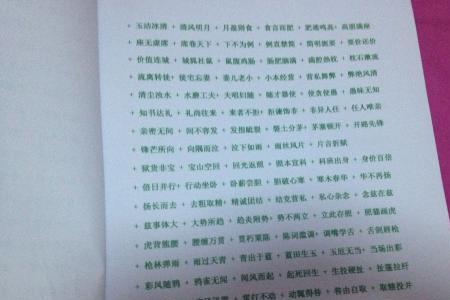 + 玉洁冰清 + 清风明月 + 月盈则食 + 食言而肥 + 肥遁鸣高 + 高朋满座
+ 座无虚席 + 席卷天下 + 下不为例 + 例直禁简 + 简明扼要 + 要价还价
+ 价值连城 + 城狐社鼠 + 鼠腹鸡肠 + 肠肥脑满 + 满腔热枕 + 枕石漱流
+ 流离转徙 + 徙宅忘妻 + 妻儿老小 + 小本经营 + 营私舞弊 + 弊绝风清
+ 清尘浊水 + 水磨工夫 + 夫唱妇随 + 随才器使 + 使贪使愚 + 愚昧无知
+ 知书达礼 + 礼尚往来 + 来者不拒 + 拒谏饰非 + 非异人任 + 任人唯亲
+ 亲密无间 + 间不容发 + 发指眦裂 + 裂土分茅 + 茅塞顿开 + 开路先锋
+ 锋芒所向 + 向隅而泣 + 泣下如雨 + 雨丝风片 + 片言折狱
+ 狱货非宝 + 宝山空回 + 回光返照 + 照本宣科 + 科班出身 + 身价百倍
+ 倍日并行 + 行动坐卧 + 卧薪尝胆 + 胆破心寒 + 寒木春华 + 华不再扬
+ 扬长而去 + 去粗取精 + 精诚团结 + 结党营私 + 私心杂念 + 念兹在兹
+ 兹事体大 + 大势所趋 + 趋炎附势 + 势不两立 + 立此存照 + 照猫画虎
+ 虎背熊腰 + 腰缠万贯 + 贯朽粟陈 + 陈词滥调 + 调嘴学舌 + 舌剑唇枪
+ 枪林弹雨 + 雨过天青 + 青出于蓝 + 蓝田生玉 + 玉卮无当 + 当场出彩
+ 彩凤随鸦 + 鸦雀无闻 + 闻风而起 + 起死回生 + 生拉硬扯 + 扯篷拉纤
+ 常打不动 + 动辄得咎 + 咎由自取 + 取精